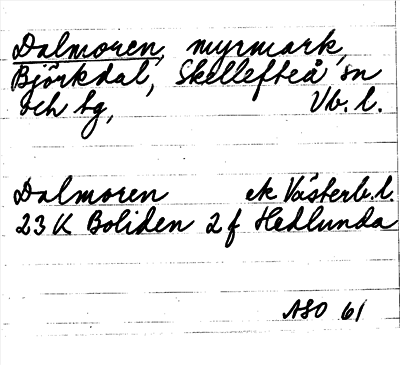 Dalmoren, myrmark,
Björkdal, Skellefteå sn
och tg, Vb. l.
Dalmoren ek Västerb. l.
23 K Boliden 2 f Hedlunda
ASO 61